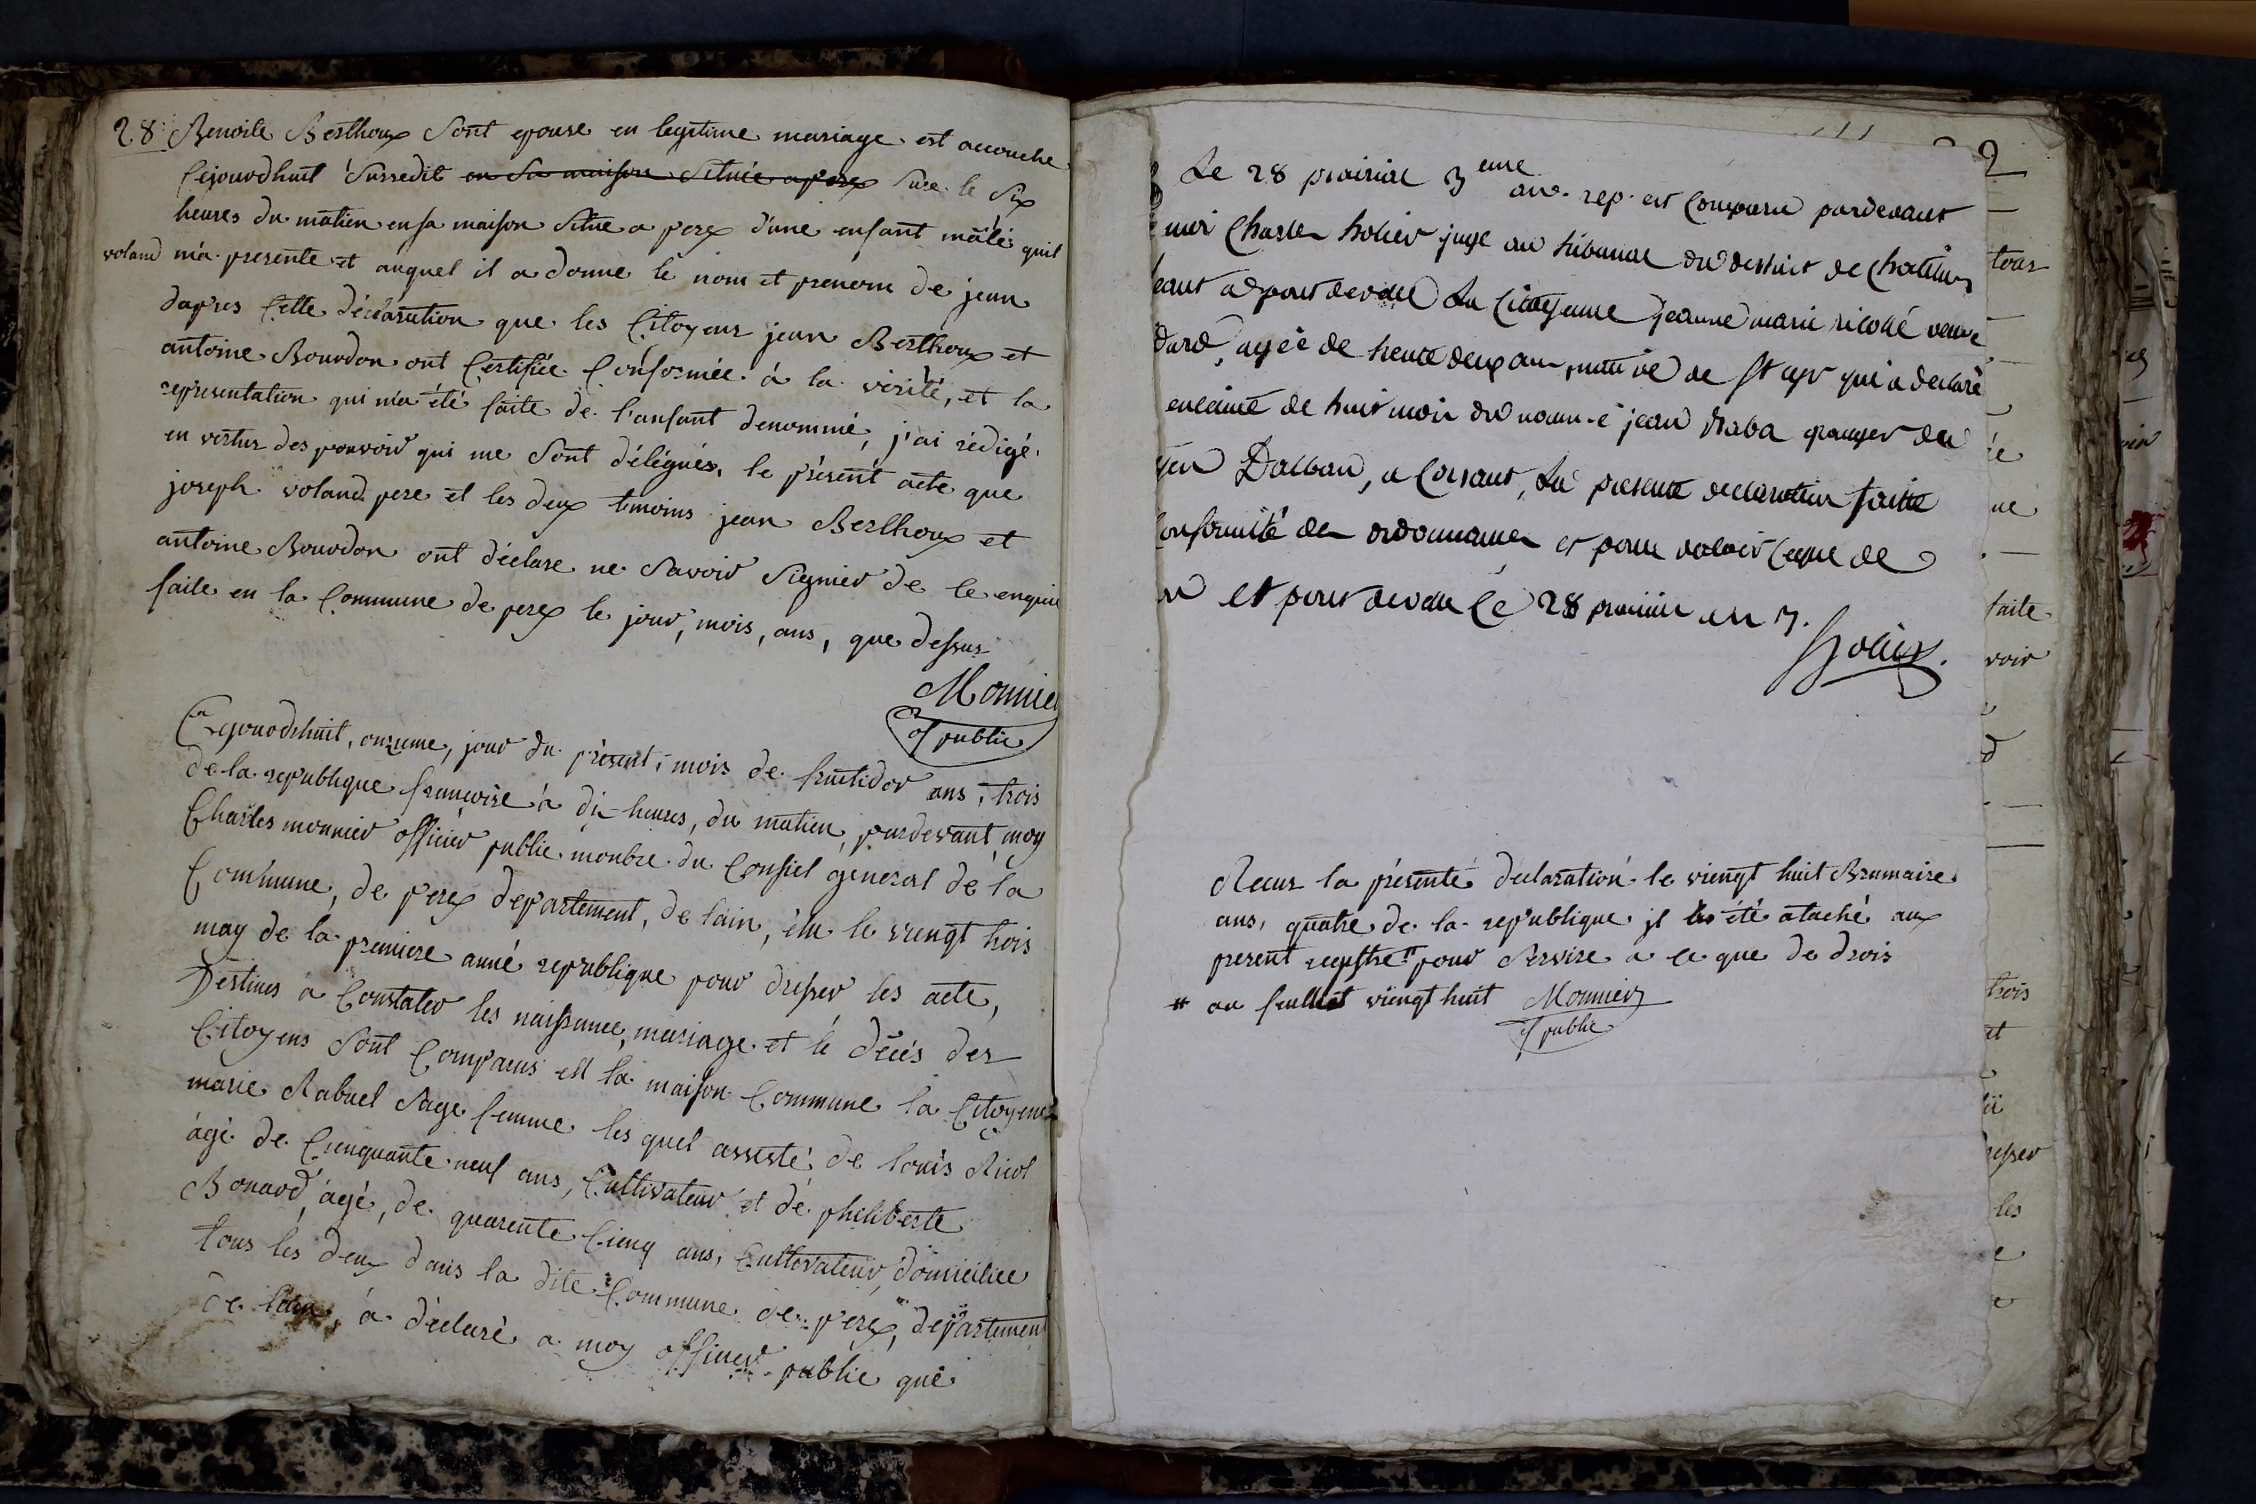 28 Benoite Berthoux Sont epouse en legitime mariage est accouche
Cejourdhuit Surredit en Sa maison Situee a perex Sure le Six
heures du matien en sa maison Situe a perex d'une enfant mâle quil
voland m'a presente et auquel il a donne le nom et prenom de jean
dapres Cette déclaration que les Citoyens jean Berthoux et
antoine Bourdon ont Certifiée Conformée à la vérité, et la
representation qui m'a été faite de l'anfant denommé, j'ai rédigé
en vertus des pouvoir qui me Sont délégués, le présent acte que
joseph voland pere et les deux temoins jean Berthoux et
antoine Bourdon ont déclare ne Savoir Signier de le enquit
faite en la Commune de perex le jour, mois, ans, que dessus
Monnier
of public
Cejourdhuit, onzieme, jour du présent, mois de fructidor ans, trois
de la republique françoise à dix heures, du matien, pardevant moy
Charles monnier officier public membre du Consiel general dé la
Commune, de perex departement, de lain, élu le viengt trois
may de la premiere anné republique pour dresser les acte,
Destines a Constater les naissance, mariage et le décés des
Citoyens Sont Comparus en la maison Commune la Citoyene
marie Rabuel Sage femme les quel assisté de louis Ricol
âgé de Cienquante neuf ans, Cultivateur et de philiberte
Bonard, âgé, de quarente Cienq ans, Cultivateur, domiciliee
tous les deux dans la dite Commune de perex, departement
de lain, à déclaré a moy officier public que
Le 28 prairial 3eme an. rep. est Comparu pardevant
moi Charles holier juge au tribunal du destrict de Chatillon
eant a pont de vele La Citoyenne jeanne marie ricollé veuve
dard, agée de trente deux ans, native de St cyr qui a declaré
enceinte de huit mois du nommé jean Raba granger du
yen Dalban, a Corsant, La presente declaration faitte
onformité des ordonnances et pour valoir ceque de
et pont de vele Le 28 prairial an 3.
holier
Recus la présente déclaration le viengt huit Brumaire
ans, quatre de la republique il as été ataché aux
present registre # pour Servire a ce que de drois
# au feullet viengt huit Monnier
of public
2
tous
ne
faite
voir
trois
et
resser
les